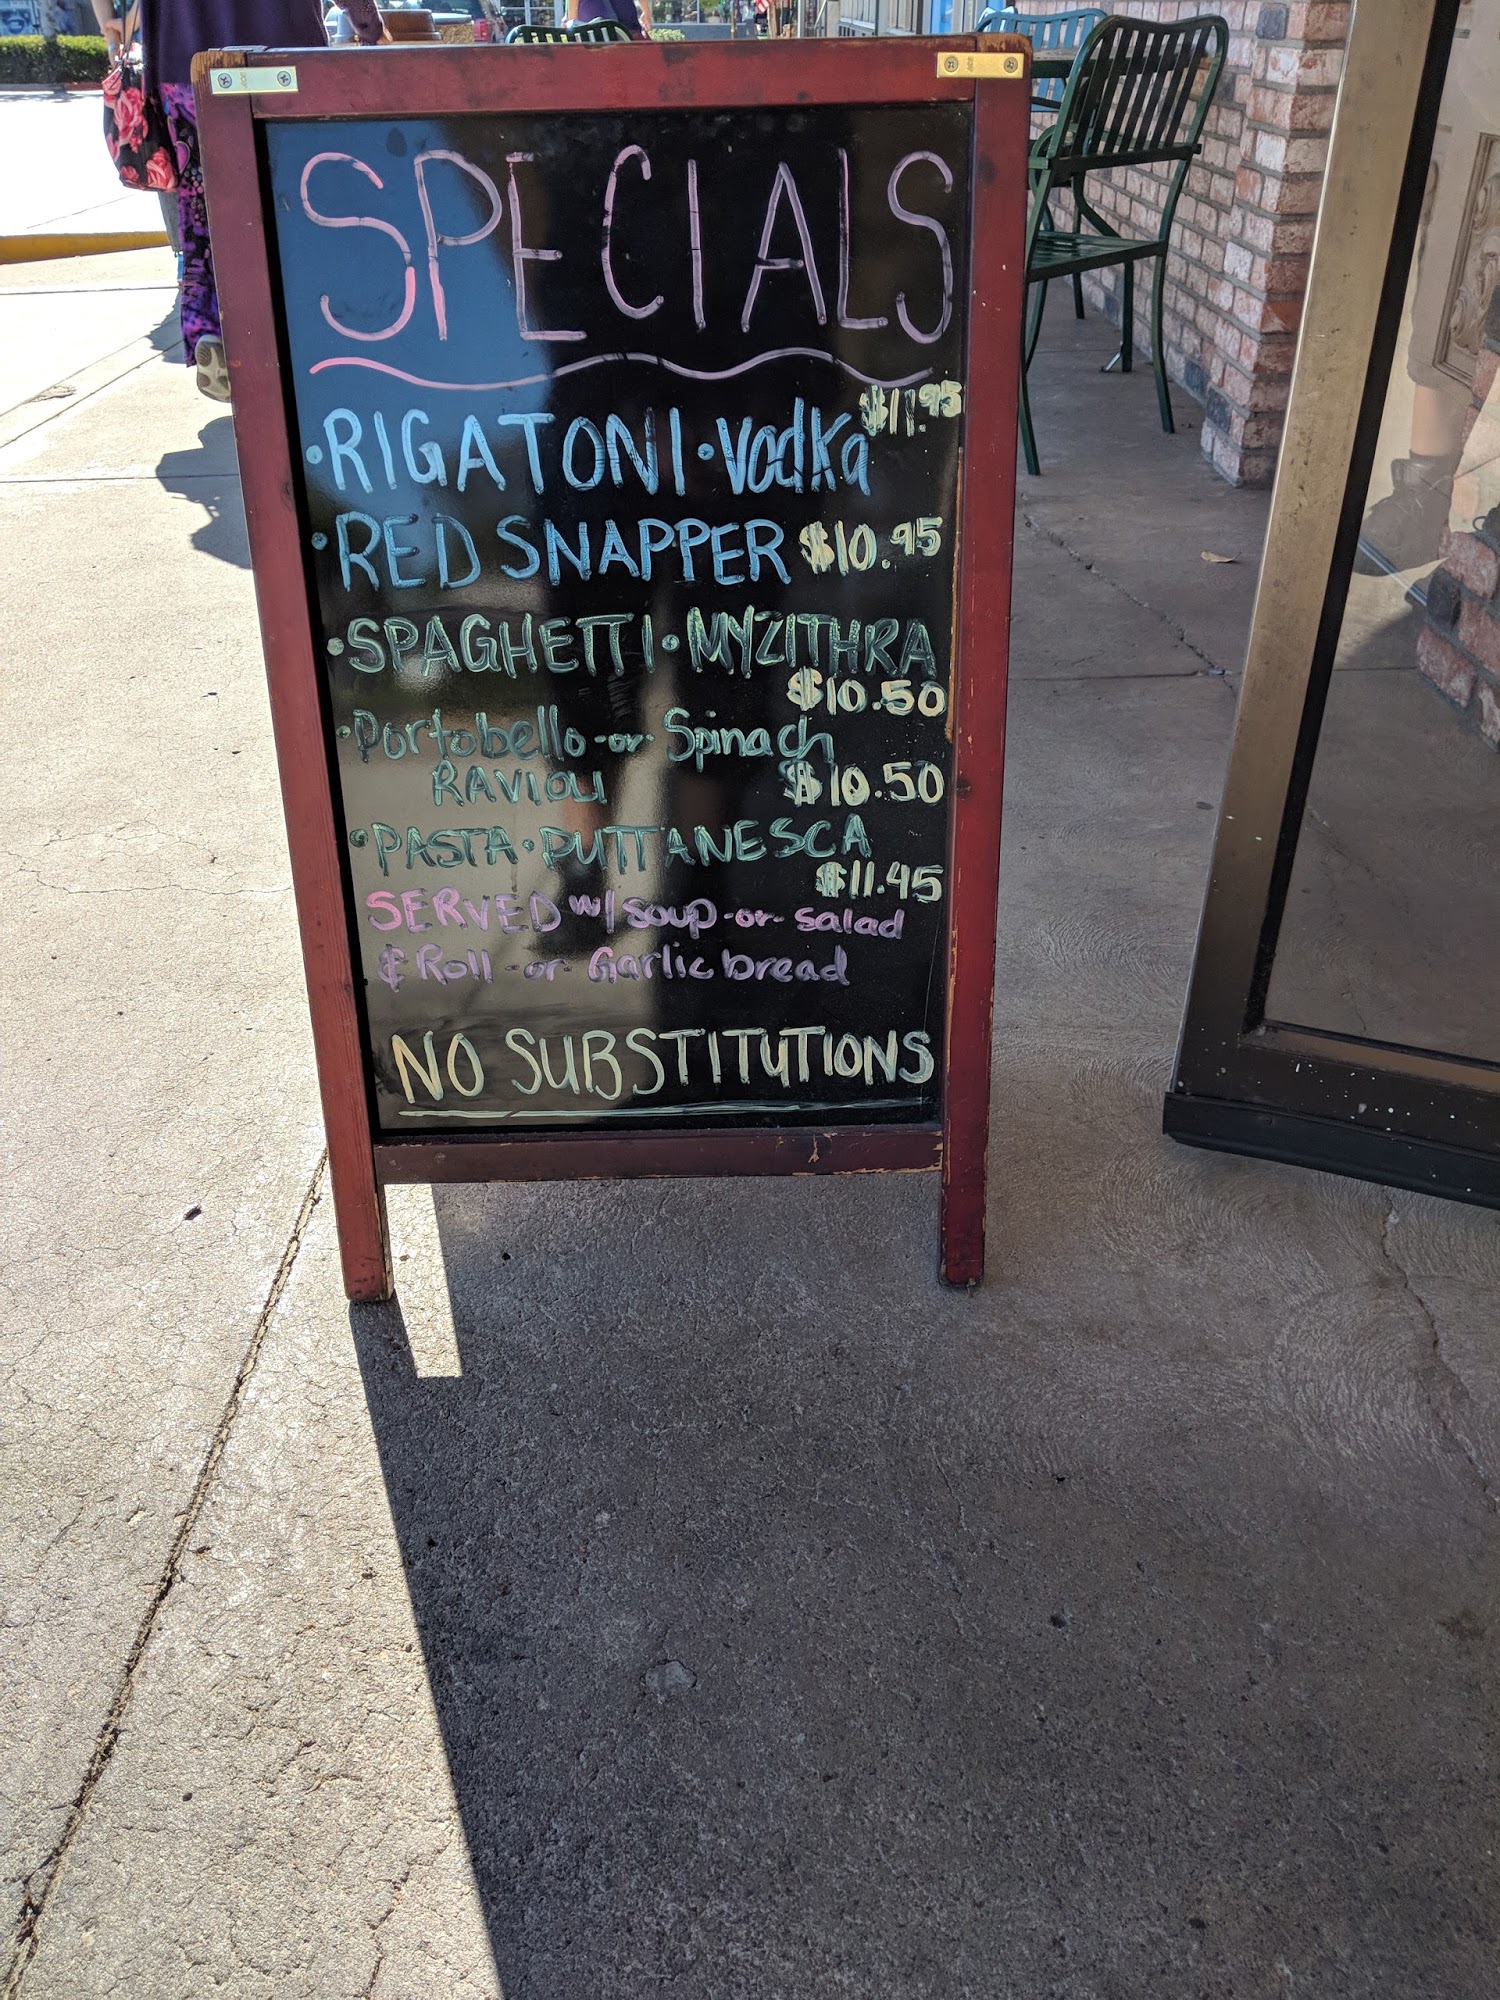 SPECIALS
$11.95
•RIGATONI•Vodka
•RED SNAPPER $10.95
•SPAGHETTI•MYZITHRA
$10.50
•Portobello-or-Spinach
RAVIOLI $10.50
•PASTA•PUTTANESCA
$11.45
SERVED w/ soup-or-salad
& Roll-or-Garlic bread
NO SUBSTITUTIONS